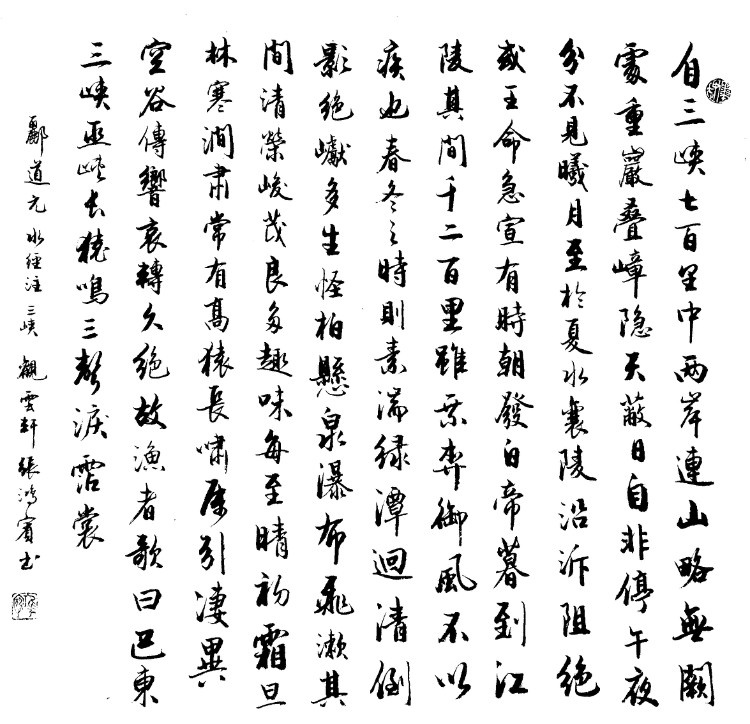 自三峡七百里中两岸連山略無闕
處重巖叠嶂隐天蔽日自非停午夜
分不見曦月至於夏水襄陵沿泝阻絶
或王命急宣有時朝發白帝暮到江
陵其間千二百里雖乗奔御風不以
疾也春冬之時則素湍緑潭迴清倒
影絶巘多生怪柏懸泉瀑布飛漱其
間清榮峻茂良多趣味每至晴初霜旦
林寒澗肅常有高猿長嘯属引凄異
空谷傳響哀轉久绝故漁者歌曰巴東
三峡巫峡长猿鳴三聲淚霑裳
酈道元水經注三峡觀雲軒張鴻賓书